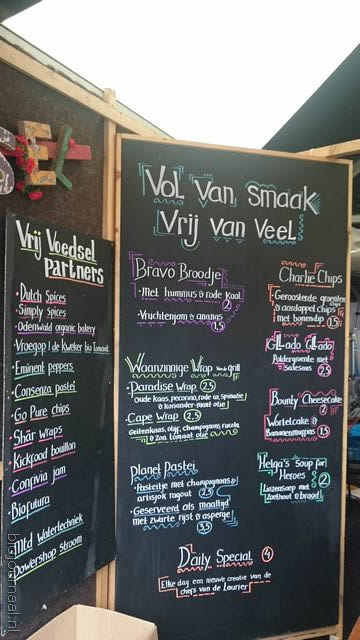 EL
Vrij Voedsel
Partners
• Dutch Spices
• Simply spices
• Odenwald organic bakery
• Vroegop / de kweker bio tomaat
• Eminent peppers
• Consenza pastei
• Go Pure chips
• Shär wraps
• Kickrood bouillon
• Conjivia jam
• Biofutura
• Mtd Watertechniek
• Powershop stroom
Vol van smaak
Vrij van veel
Bravo Broodje
• Met hummus & rode kool
2
• Vruchtenjam & ananas
1,5
Waanzinnige Wrap van de grill
• Paradise Wrap 2,5
oude kaas, pecorino, rode ui, spinatie
& koriander-munt olie
• Cape Wrap 2,5
Geitenkaas, olijf, champignons, rucola
& zon tomaat olie
Planet Pastei
• Pasteitje met champignons &
artisjok ragout 2,5
• Geserveerd als maaltijd
met zwarte rijst & asperge
3,5
Charlie Chips
• Geroosterde groenten
& aardappel chips
met bonendip 1,5
Poldergroente met
salesaus 2,5
Bounty Cheesecake
2
Wortelcake &
Bananenmuffins 1,5
Helga's Soup for
Heroes 2
Linzensoep met
Zoethout & brood
Daily Special 4
Elke dag een nieuwe creatie van de
chefs van de Laurier
biojournaal.nl